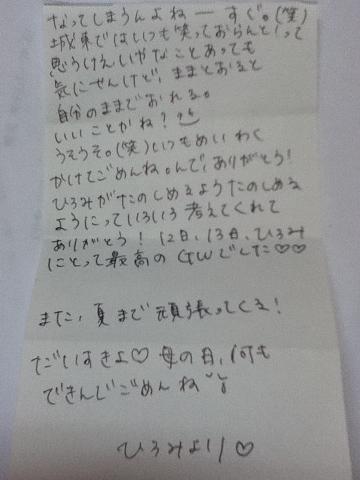 なってしまうんよねー すぐ。(笑)
城東ではいつも笑っておらんと！って
思うけえいやなことあっても
気にせんけど、ままとおると
自分のままでおれる。
いいことかね？
うそうそ。(笑)いつもめいわく
かけてごめんね。んで、ありがとう！
ひろみがたのしめるようたのしめる
ようにっていろいろ考えてくれて
ありがとう！ 12日、13日、ひろみ
にとって最高のGWでした♡♡
また、夏まで頑張ってくる！
だいすきよ♡ 母の日、何も
できんでごめんね
ひろみより♡